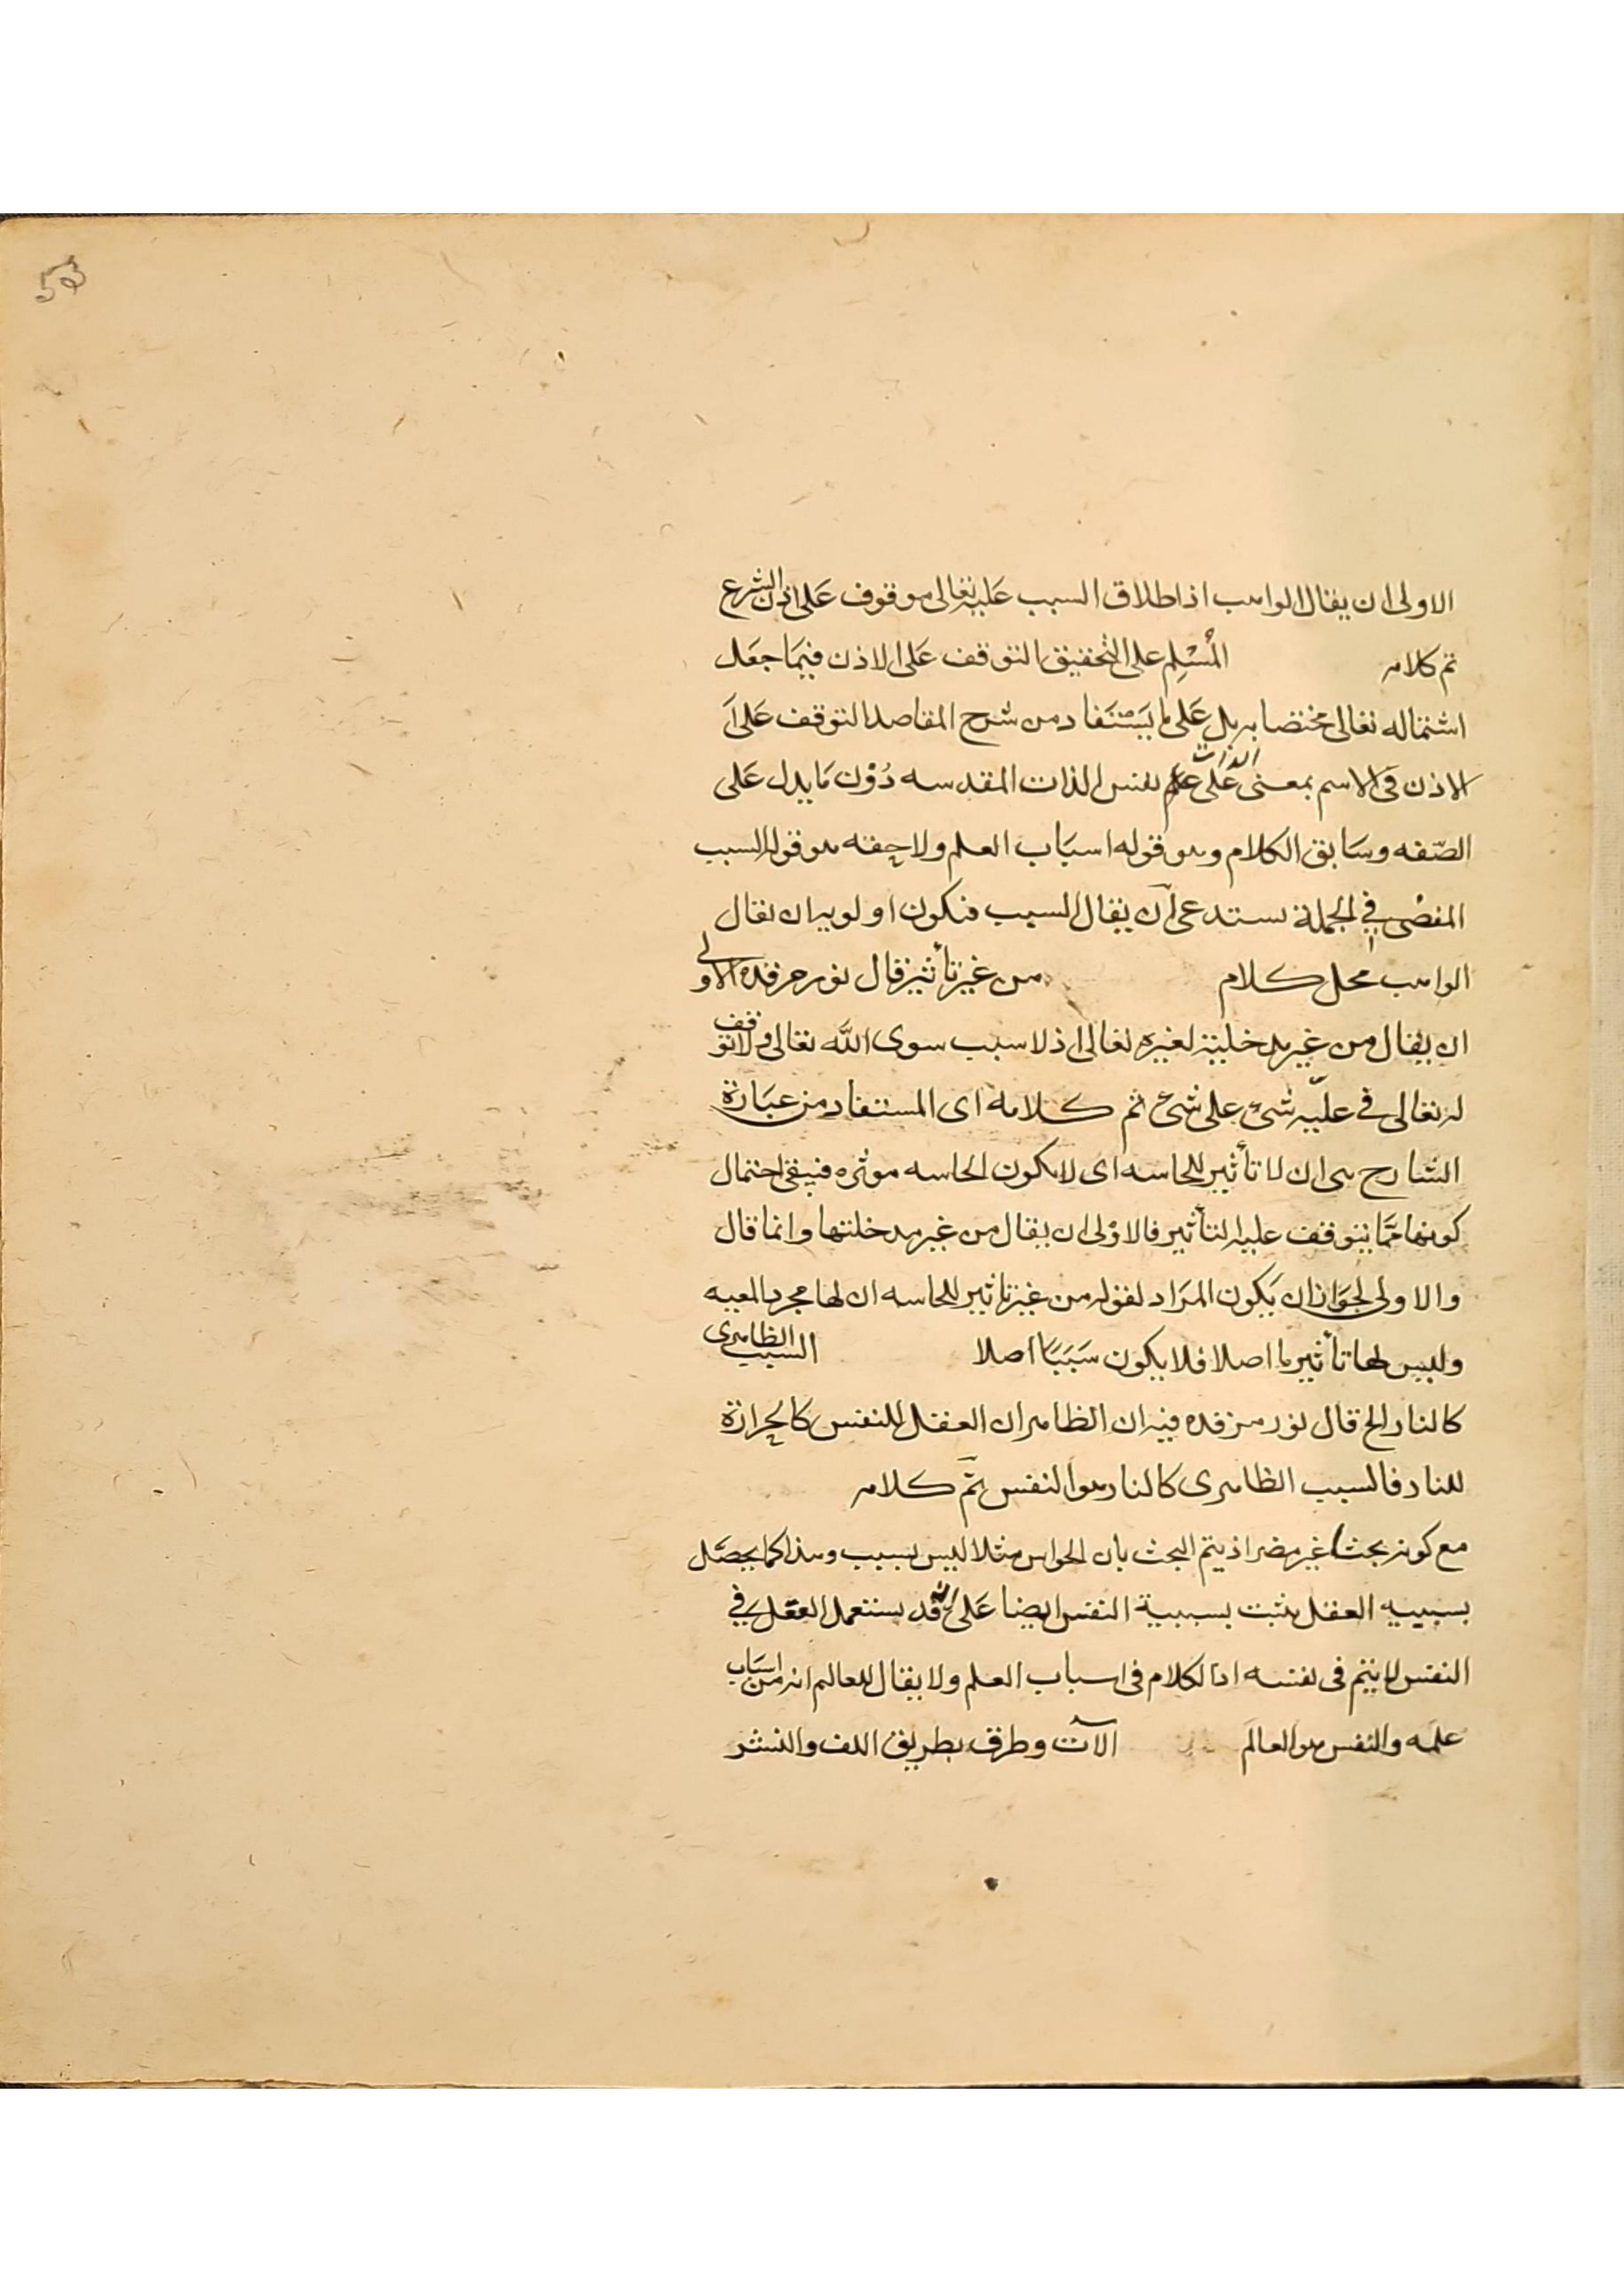 53
الاولى ان يقال الواهب اذ اطلاق السبب عليه تعالى موقوف على اذن الشرع
تم كلامه المسلم على التحقيق التوقف على الاذن فيما جعل
اشتماله تعالى مختصا به بل على ما يستفاد من شرح المقاصد التوقف على
الاذن فى الاسم بمعنى الذات على نفس الذات المقدسه دون ما يدل على
الصفه وسابق الكلام وهو قوله اسباب العلم ولاحقه هو قوله السبب
المفضى فى الجملة يستدعى ان يقال السبب فتكون اولويه ان يقال
الواهب محل كلام من غير تأثير قال نور مرقده الاولى
ان يقال من غير مدخلية لغيره تعالى اذ لا سبب سوى الله تعالى ولا توقف
له تعالى فى علية شئ على شئ تم كلامه اى المستفاد من عبارة
الشارح هى ان لا تأثير للحاسه اى لا يكون الحاسه موثره فيبقى احتمال
كونها مما يتوقف عليه التأثير فالاولى ان يقال من غير مدخلتها وانما قال
والاولى لجواز ان يكون المراد لقوله من غير تاثير للحاسه ان لها مجرد المعيه
وليس لها تأثير ما اصلا فلا يكون سببا اصلا السبب الظاهرى
كالنار الخ قال نور مرقده فيه ان الظاهر ان العقل للنفس كالحرارة
للنار فالسبب الظاهرى كالنار هو النفس تم كلامه
مع كونه بحثا غير مضر اذ يتم البحث بان الحواس مثلا ليس بسبب وهذا كما يحصل
بسببيه العقل يثبت بسببية النفس ايضا على انه قد يستعمل العقل فى
النفس لا يتم فى نفسه اذ الكلام فى اسباب العلم ولا يقال للعالم انه من اسباب
علمه والنفس هو العالم الآت وطرق بطريق اللف والنشر